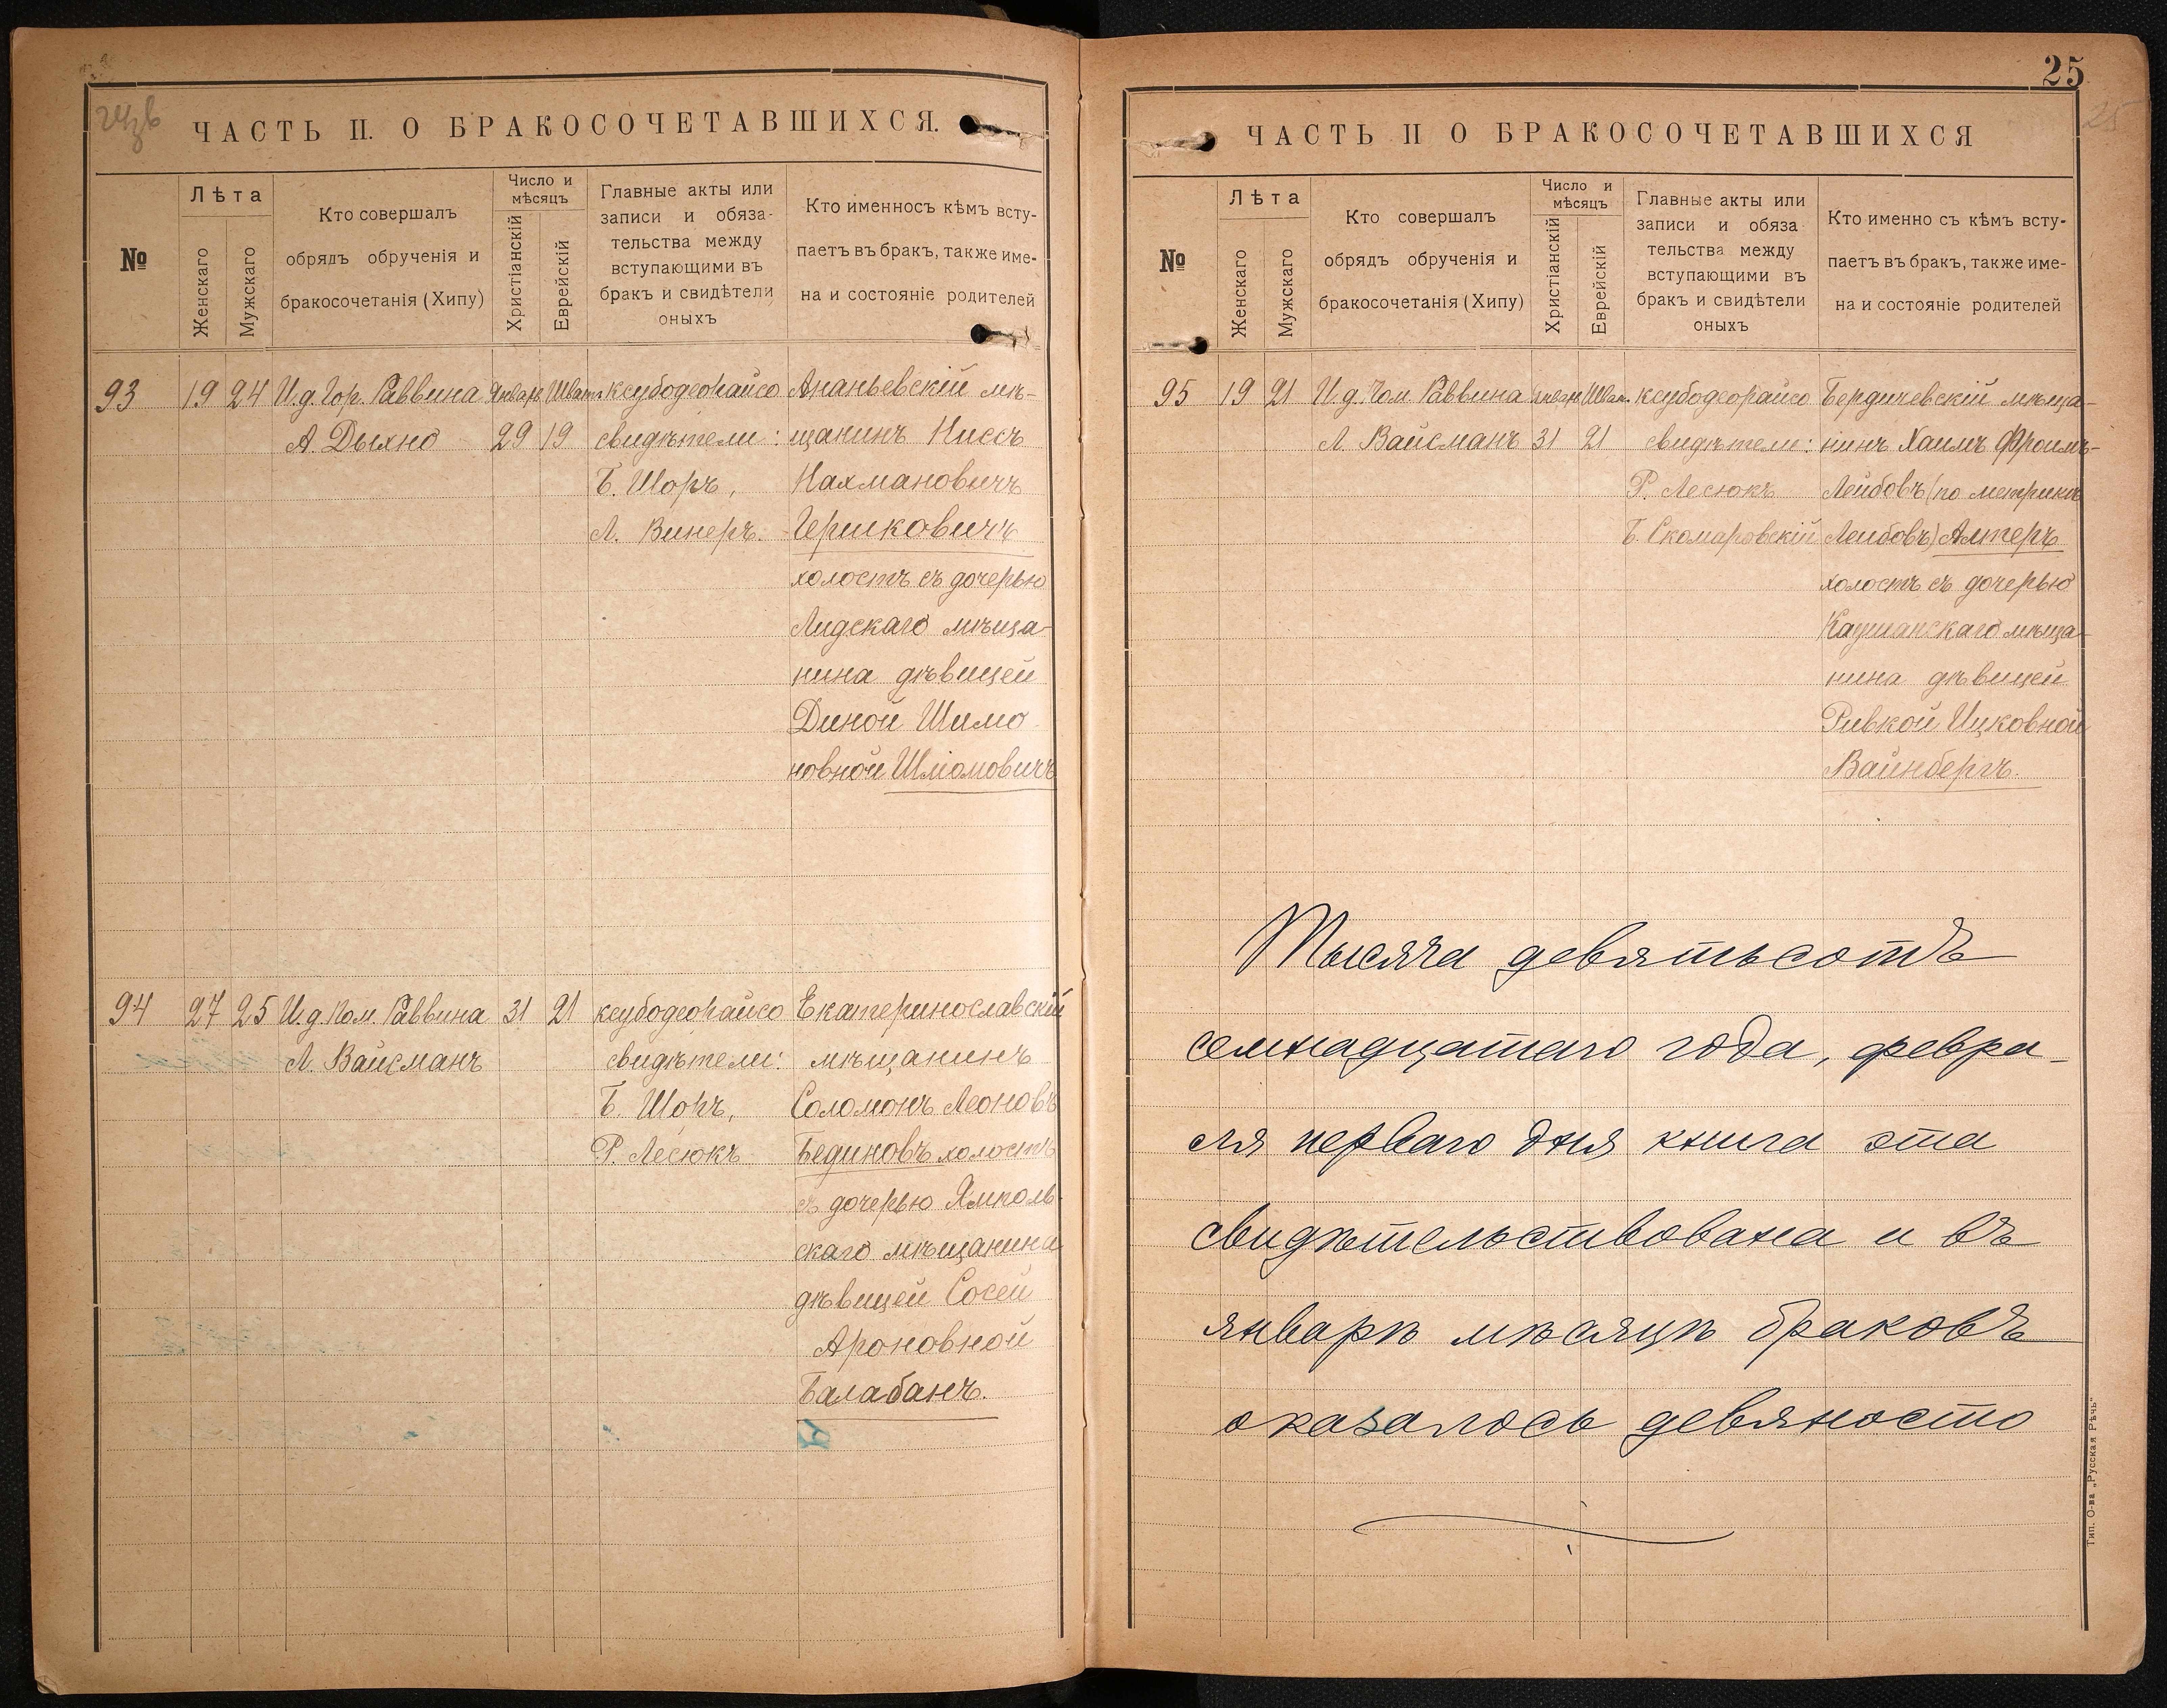 ЧАСТЬ II. О БРАКОСОЧЕТАВШИХСЯ.
№
Лѣта
Женскаго
Мужскаго
Кто совершалъ
обрядъ обрученія и
бракосочетанія (Хипу)
Число и
мѣсяцъ
Христіанскій
Еврейскій
Главные акты или
записи и обяза-
тельства между
вступающими въ
бракъ и свидѣтели
оныхъ
Кто именносъ кѣмъ всту-
паетъ въ бракъ, также име-
на и состояніе родителей
93 19 24 И.д. Гор. Раввина Январь Шватъ ксубодеорайсо Ананьевскій мѣ-
А. Дыхно 29 19 свидѣтели: щанинъ Ниссъ
Б. Шоръ, Нахмановичъ
Л. Винеръ. Гершковичъ
холостъ съ дочерью
Лидскаго мѣща-
нина дѣвицей
Диной Шимо
новной Шліомовичъ
94 27 25 И.д. Пом. Раввина 31 21 ксубодеорайсо Екатеринославскій
Л. Вайсманъ свидѣтели: мѣщанинъ
Б. Шоръ, Соломонъ Леоновъ
Р. Лесюкъ Бединовъ холостъ
съ дочерью Ямполь-
скаго мѣщанина
дѣвицей Сосей
Ароновной
Балабанъ.
25
25
ЧАСТЬ II О БРАКОСОЧЕТАВШИХСЯ
№
Лѣта
Женскаго
Мужскаго
Кто совершалъ
обрядъ обрученія и
бракосочетанія (Хипу)
Число и
мѣсяцъ
Христіанскій
Еврейскій
Главные акты или
записи и обяза
тельства между
вступающими въ
бракъ и свидѣтели
оныхъ
Кто именно съ кѣмъ всту-
паетъ въ бракъ, также име-
на и состояніе родителей
95 19 21 И.д. Пом. Раввина Январь Шват. ксубодеорайсо Бердичевскій мѣща-
Л. Вайсманъ 31 21 свидѣтели: нинъ Хаимъ Фроимъ-
Р. Лесюкъ Лейбовъ (по метрикѣ
Б. Скомаровскій Леибовъ) Алтеръ
холостъ съ дочерью
Каушанскаго мѣща-
нина дѣвицей
Ривкой Ицковной
Вайнбергъ.
Тысяча девятьсотъ
семнадцатаго года, февра-
ля перваго дня книга эта
свидѣтельствована и въ
январѣ мѣсяцѣ браковъ
оказалось девяносто
Тип. О-ва „Русская Рѣчь"